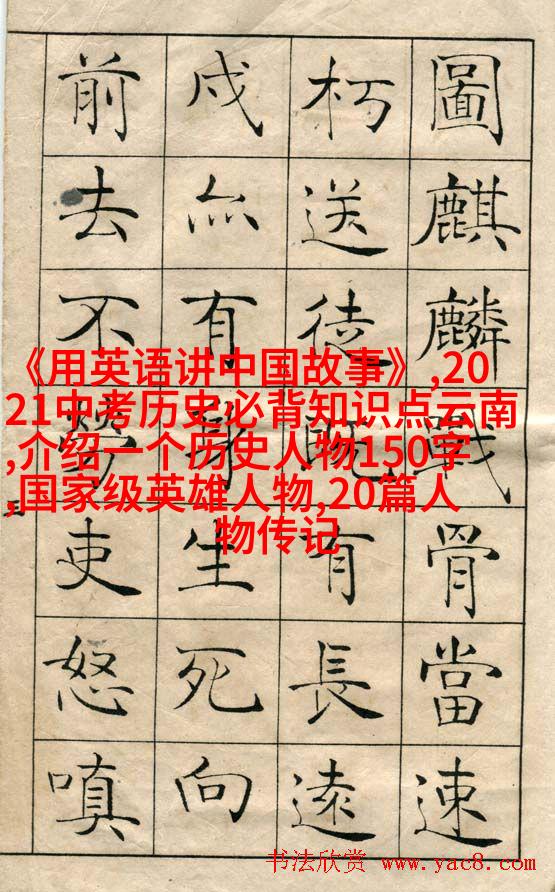 圖麒麟戰骨當速
朽送徒既有長遠
戍亦有身生死向
前去不勞吏怒嗔
《用英语讲中国故事》,20
21中考历史必背知识点云南
,介绍一个历史人物150字
,国家级英雄人物,20篇人
物传记
书法欣赏 www.yac8.com